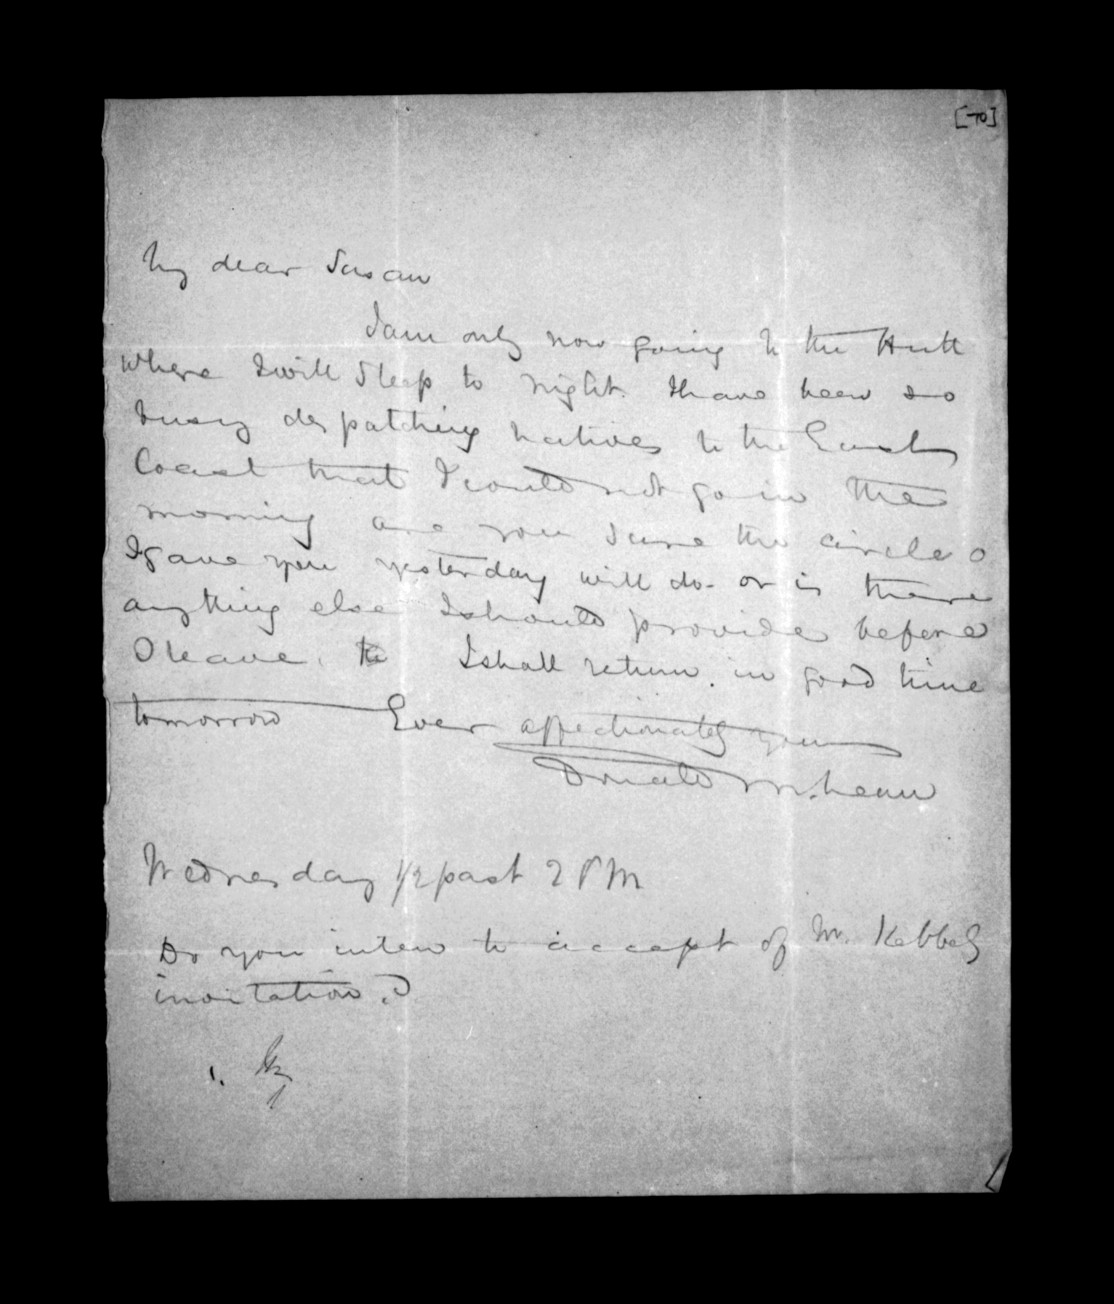 [70]
My dear Susan
I am only now going to the Hutt
where I will sleep to night. I have been so
busy despatching natives to the East
Coast that I could not go in the
morning are you sure the circle o
I gave you yesterday will do - or is there
anything else I should provide before
I leave. I shall return in good time
tomorrow Ever affectionately yours
Donald McLean
Wednesday 1/2 past 2 PM
Do you inten to accept of Mr. Kebbels
invitation?